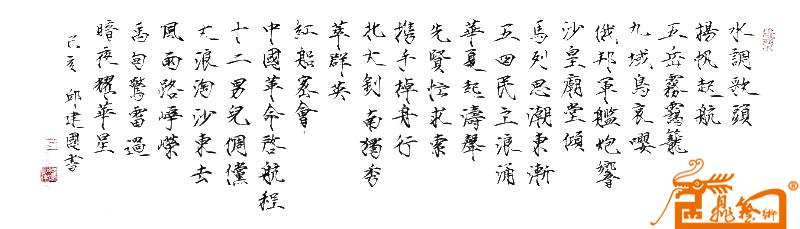 水調歌頭
揚帆起航
五岳霧靄籠
九域鳥哀嚶
俄邦軍艦炮響
沙皇廟堂傾
馬列思潮東漸
五四民主浪涌
華夏起濤聲
先賢悾求索
携手棹舟行
北大釗
南獨秀
萃群英
紅船密會
中國革命啓航程
十二男兒倜儻
大浪淘沙東去
風雨路崢嶸
禹甸驚雷過
暗夜耀華星
己亥 邱建國書